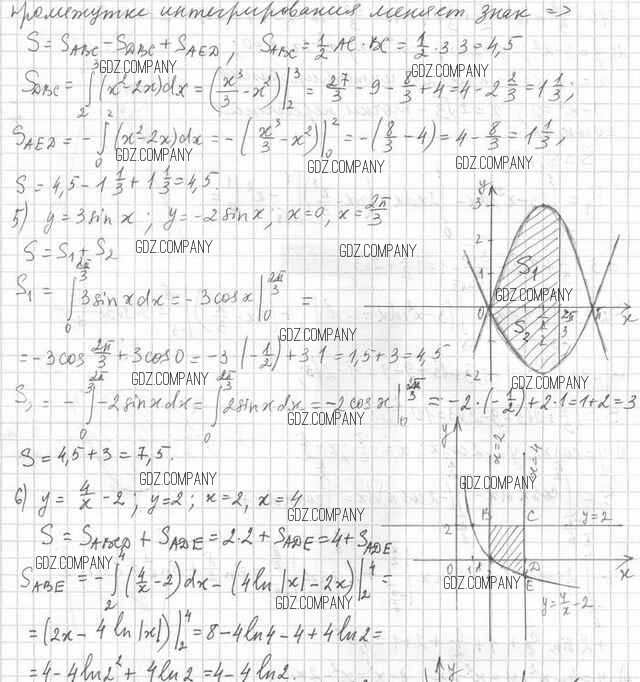 промежутке интегрирования меняет знак =>
S = S_ABC − S_DBC + S_AED; S_ABC = 1/2 AC · BC = 1/2 · 3 · 3 = 4,5
GDZ.COMPANY GDZ.COMPANY
S_DBC = ∫₂³ (x² − 2x)dx = (x³/3 − x²)|₂³ = 27/3 − 9 − 8/3 + 4 = 4 − 2 2/3 = 1 1/3;
S_AED = −∫₀² (x² − 2x)dx = −(x³/3 − x²)|₀² = −(8/3 − 4) = 4 − 8/3 = 1 1/3;
GDZ.COMPANY GDZ.COMPANY GDZ.COMPANY
S = 4,5 − 1 1/3 + 1 1/3 = 4,5.
5) y = 3 sin x; y = −2 sin x, x = 0, x = 2π/3
S = S₁ + S₂
GDZ.COMPANY GDZ.COMPANY
S₁ = ∫₀^(2π/3) 3 sin x dx = −3 cos x |₀^(2π/3) =
GDZ.COMPANY
= −3 cos 2π/3 + 3 cos 0 = −3 (−1/2) + 3·1 = 1,5 + 3 = 4,5
GDZ.COMPANY GDZ.COMPANY
S₂ = −∫₀^(2π/3) −2 sin x dx = ∫₀^(2π/3) 2 sin x dx = −2 cos x |₀^(2π/3) = −2·(−1/2) + 2·1 = 1 + 2 = 3
GDZ.COMPANY
S = 4,5 + 3 = 7,5.
GDZ.COMPANY
6) y = 4/x − 2; y = 2; x = 2, x = 4
GDZ.COMPANY
S = S_ABCD + S_ADE = 2·2 + S_ADE = 4 + S_ADE
GDZ.COMPANY
S_ABE = −∫₂⁴ (4/x − 2)dx − (4 ln|x| − 2x)|₂⁴ =
GDZ.COMPANY
= (2x − 4 ln|x|)|₂⁴ = 8 − 4 ln 4 − 4 + 4 ln 2 =
= 4 − 4 ln 2² + 4 ln 2 = 4 − 4 ln 2.
y
3
2
1
S₁
GDZ.COMPANY
0
S₂
2π/3
x
-2
GDZ.COMPANY
y
x = 2
x = 4
GDZ.COMPANY
B
C
y = 2
2
0
1
D
x
GDZ.COMPANY
E
y = 4/x − 2
y